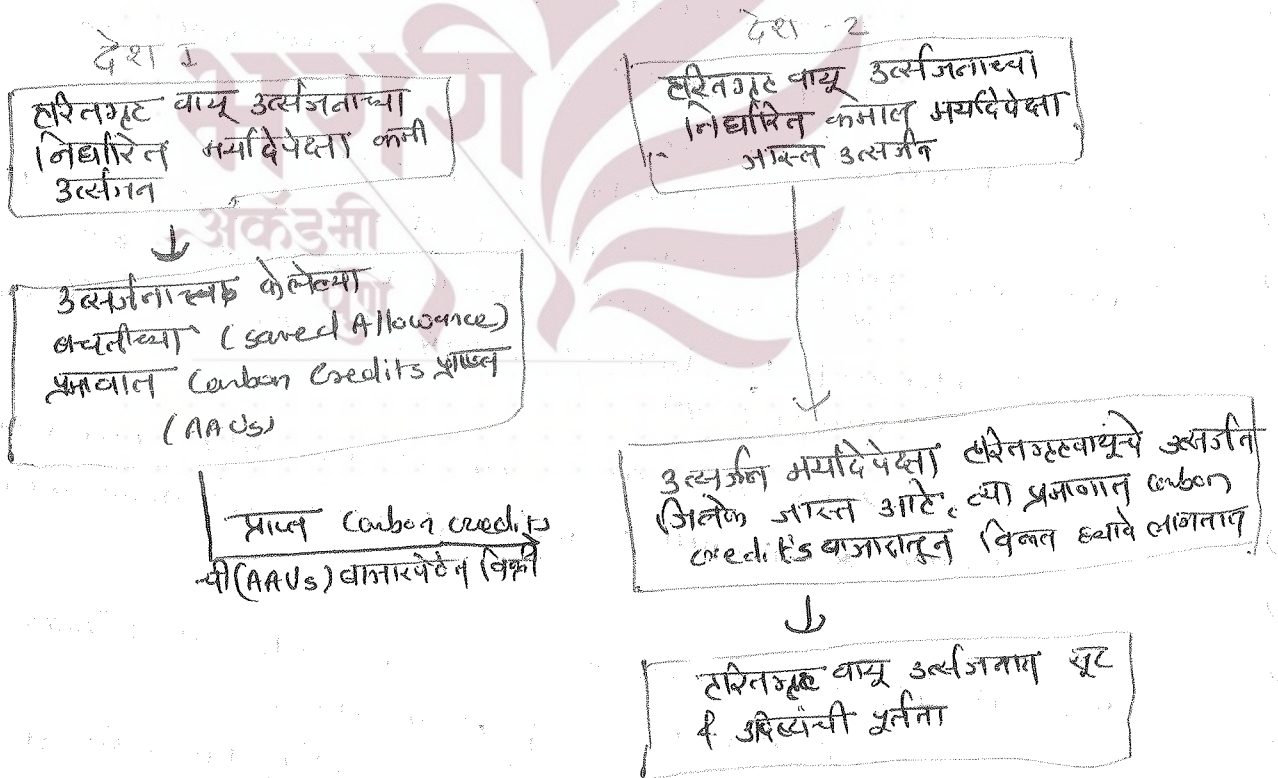 देश 1
हरितगृह वायू उत्सर्जनाच्या
निर्धारित मर्यादेपेक्षा कमी
उत्सर्जन
उत्सर्जनात केलेल्या
बचतीच्या (saved Allowance)
प्रमाणात Carbon Credits प्राप्त
(AAUs)
प्राप्त Carbon credits
ची (AAUs) बाजारपेठेत विक्री
देश - 2
हरितगृह वायू उत्सर्जनाच्या
निर्धारित कमाल मर्यादेपेक्षा
जास्त उत्सर्जन
उत्सर्जन मर्यादेपेक्षा हरितगृहवायूंचे उत्सर्जन
जितके जास्त आहे, त्या प्रमाणात carbon
credit's बाजारातून विकत घ्यावे लागतात
हरितगृह वायू उत्सर्जनात सूट
व उद्दिष्टांची पूर्तता
अकॅडमी
पुणे